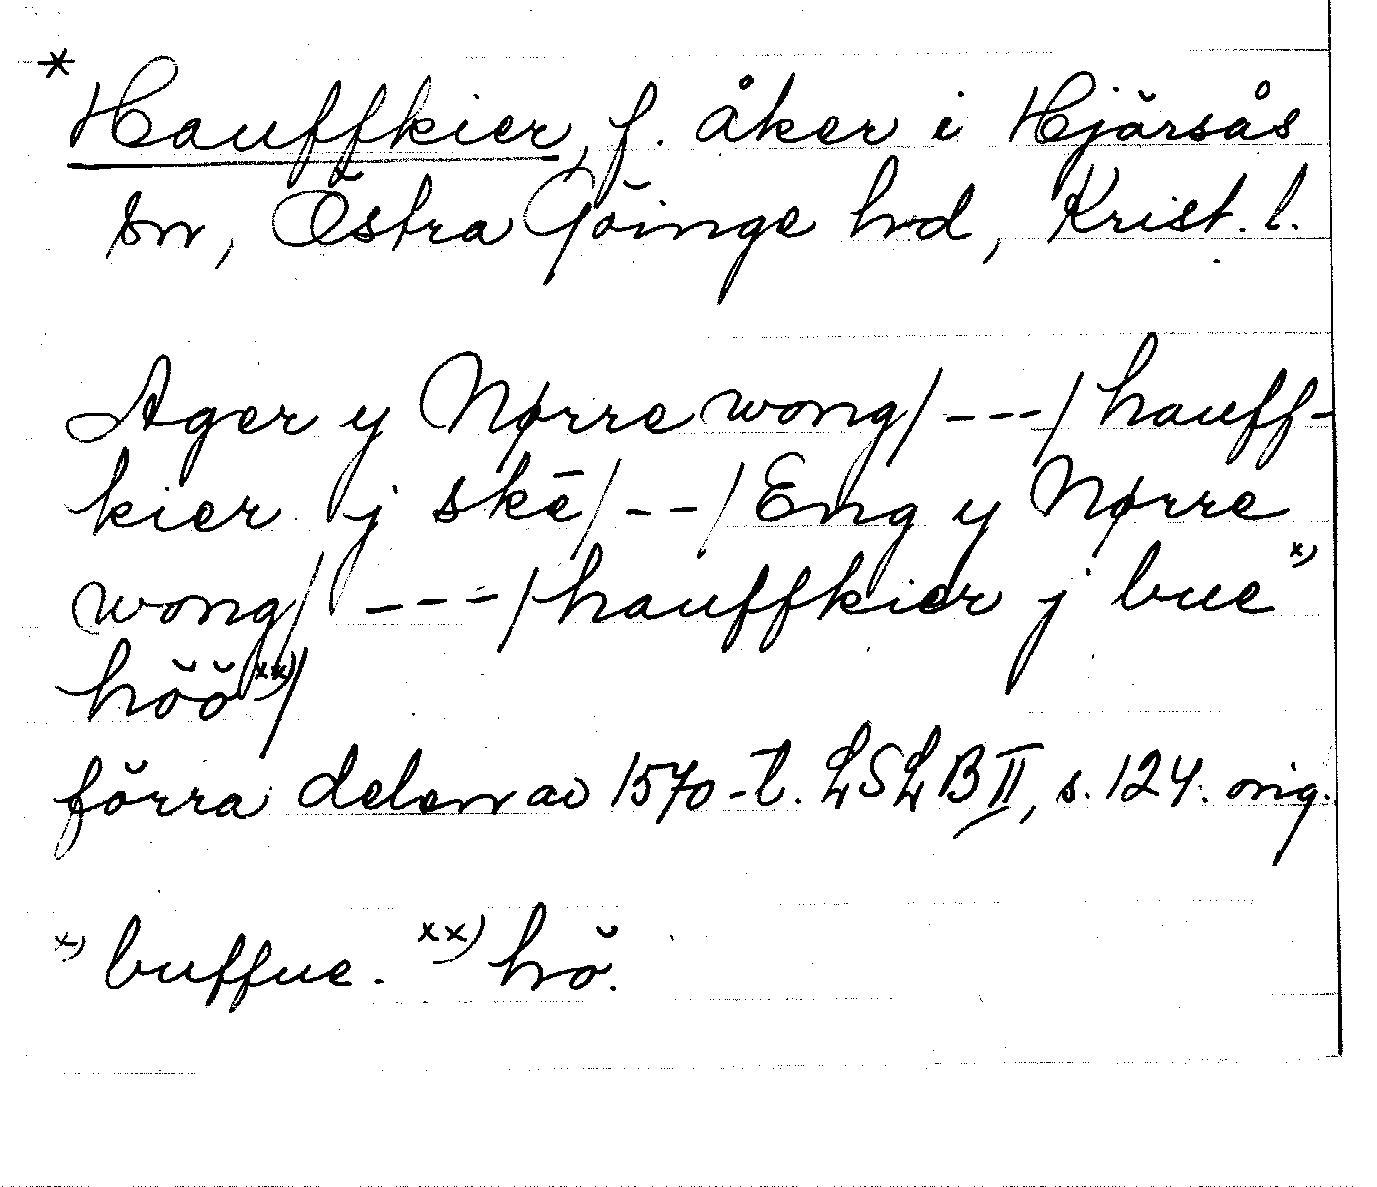 * Hauffkier, f. åker i Hjärsås
sn, Östra Göinge hrd, Krist. l.
Ager y Nørre wong/---/hauff-
kier j skē/--/Eng y Nørre
wong/ ---/hauffkier j bue x)
höö xx)/
förra delen av 1570-t. LSLB II, s. 124. orig.
x) buffue. xx) hö.